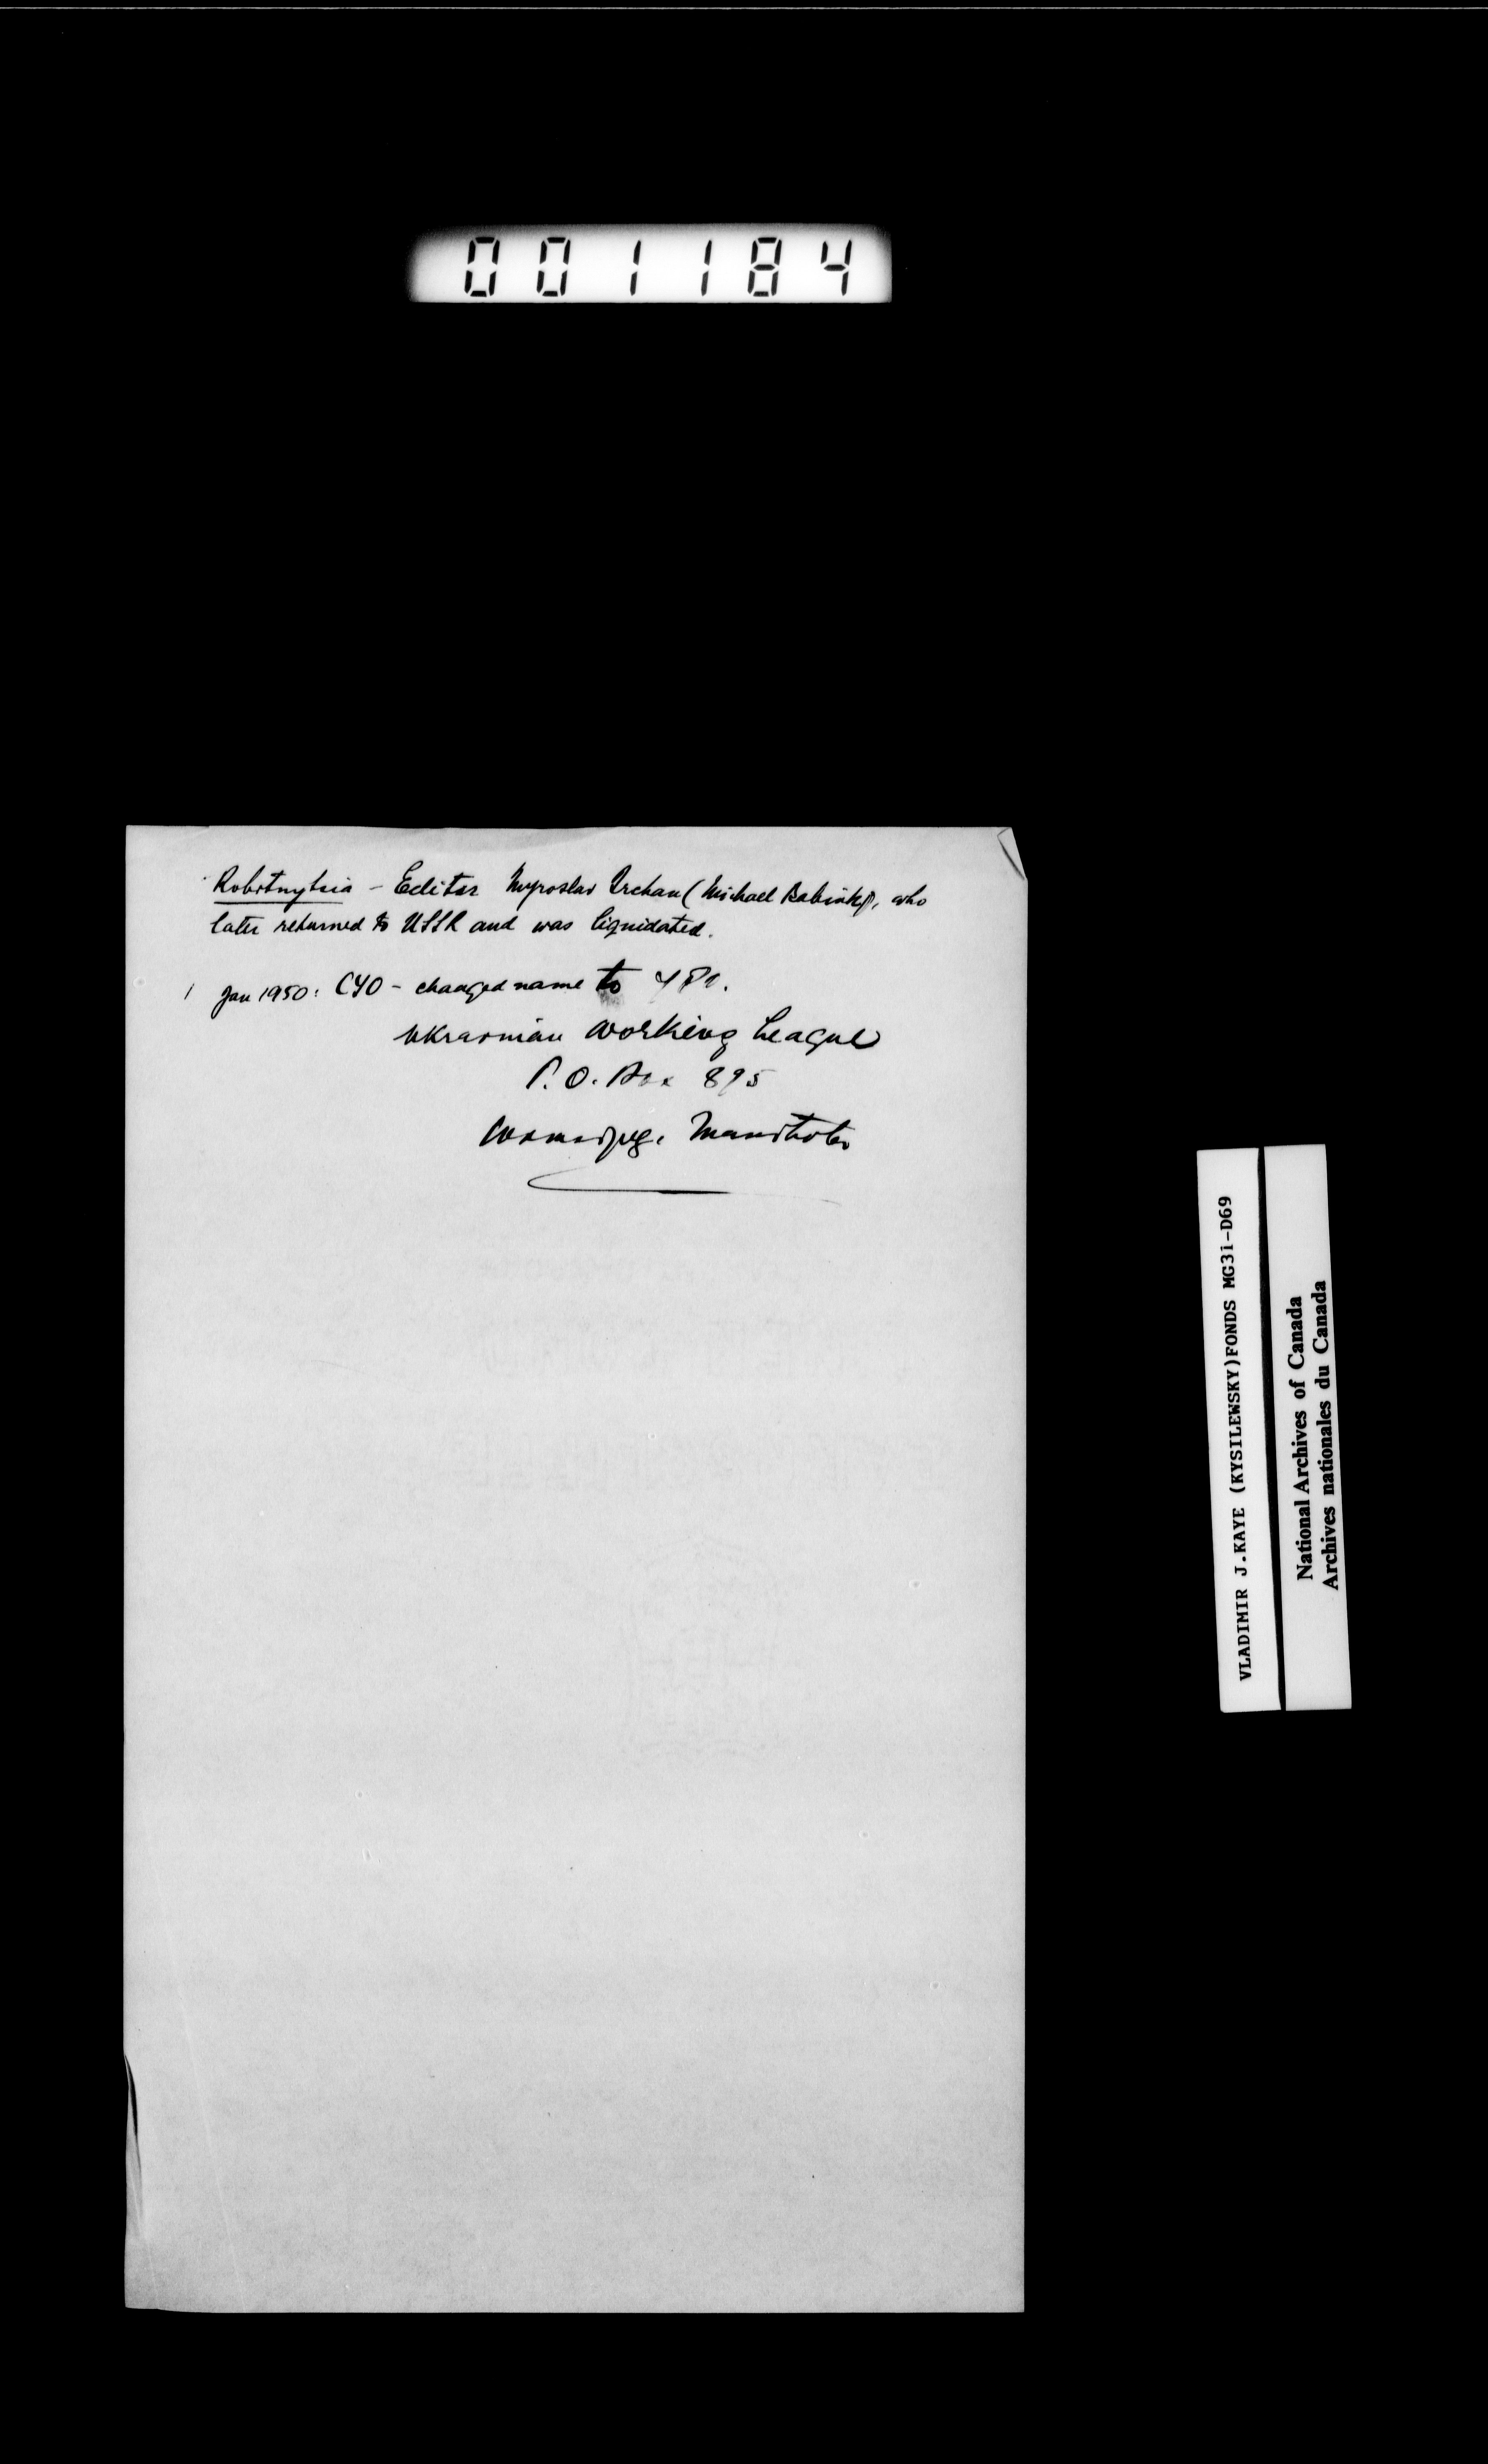 001184
Robitnytsia - Editor Myroslav Irchan (Michael Babiuk), who
later returned to USSR and was liquidated.
1 Jan 1950: CYO - changed name to
Ukrainian Working League
P.O. Box 895
Winnipeg, Manitoba
VLADIMIR J.KAYE (KYSILEWSKY)FONDS MG31-D69
National Archives of Canada
Archives nationales du Canada